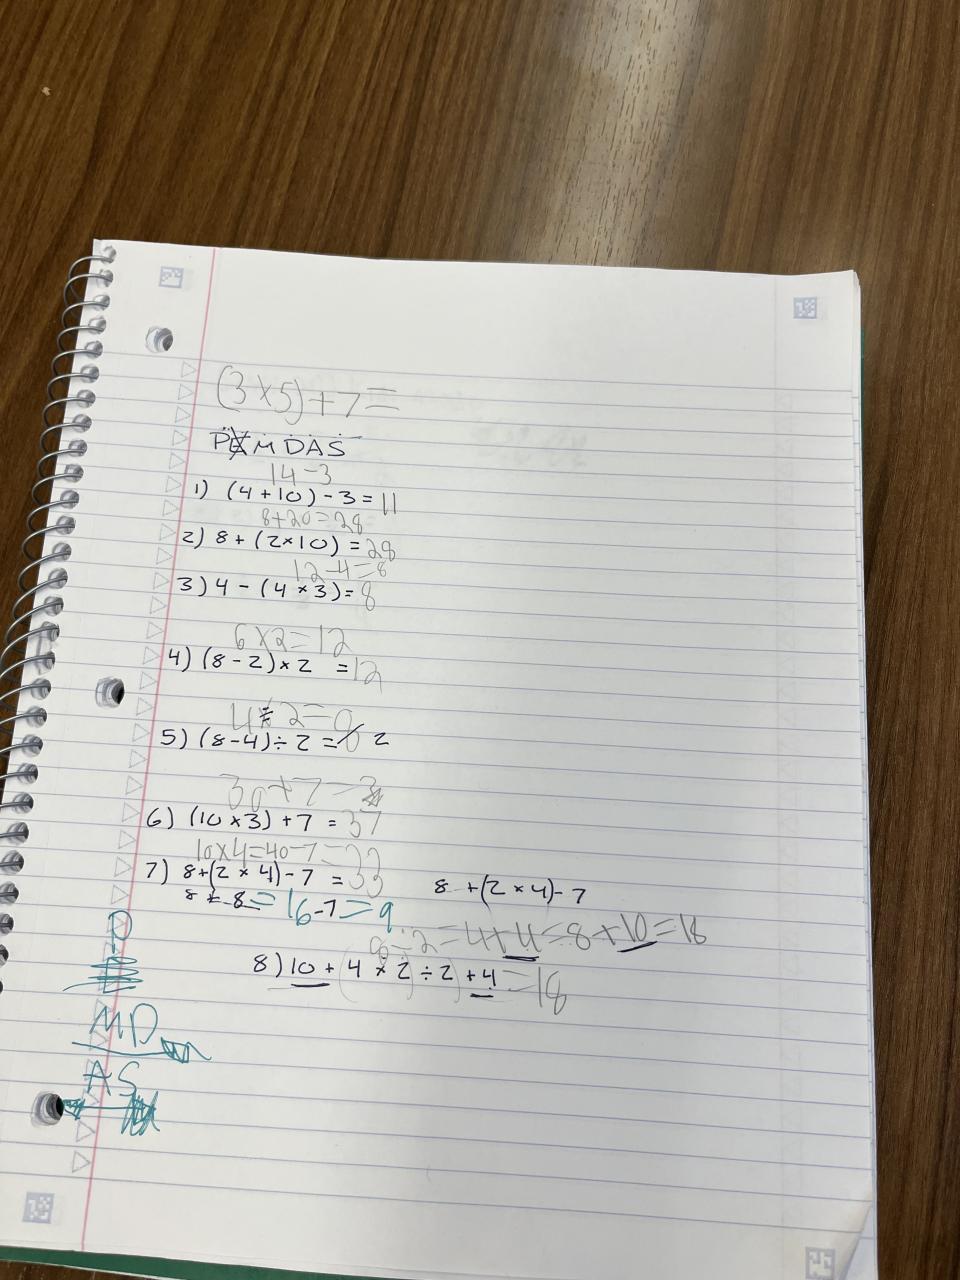 (3×5)+7=
PEMDAS
14-3
1) (4+10)-3=11
8+20=28
2) 8+(2×10)=28
12-4=8
3) 4-(4×3)=8
6×2=12
4) (8-2)×2 =12
4÷2=0
5) (8-4)÷2=0 2
30+7=
6) (10×3)+7=37
10×4=40-7=33
7) 8+(2×4)-7=33
8+8=16-7=9
8+(2×4)-7
8÷2=4+4=8+10=18
8) 10+(4×2÷2)+4=18
P
MD
AS